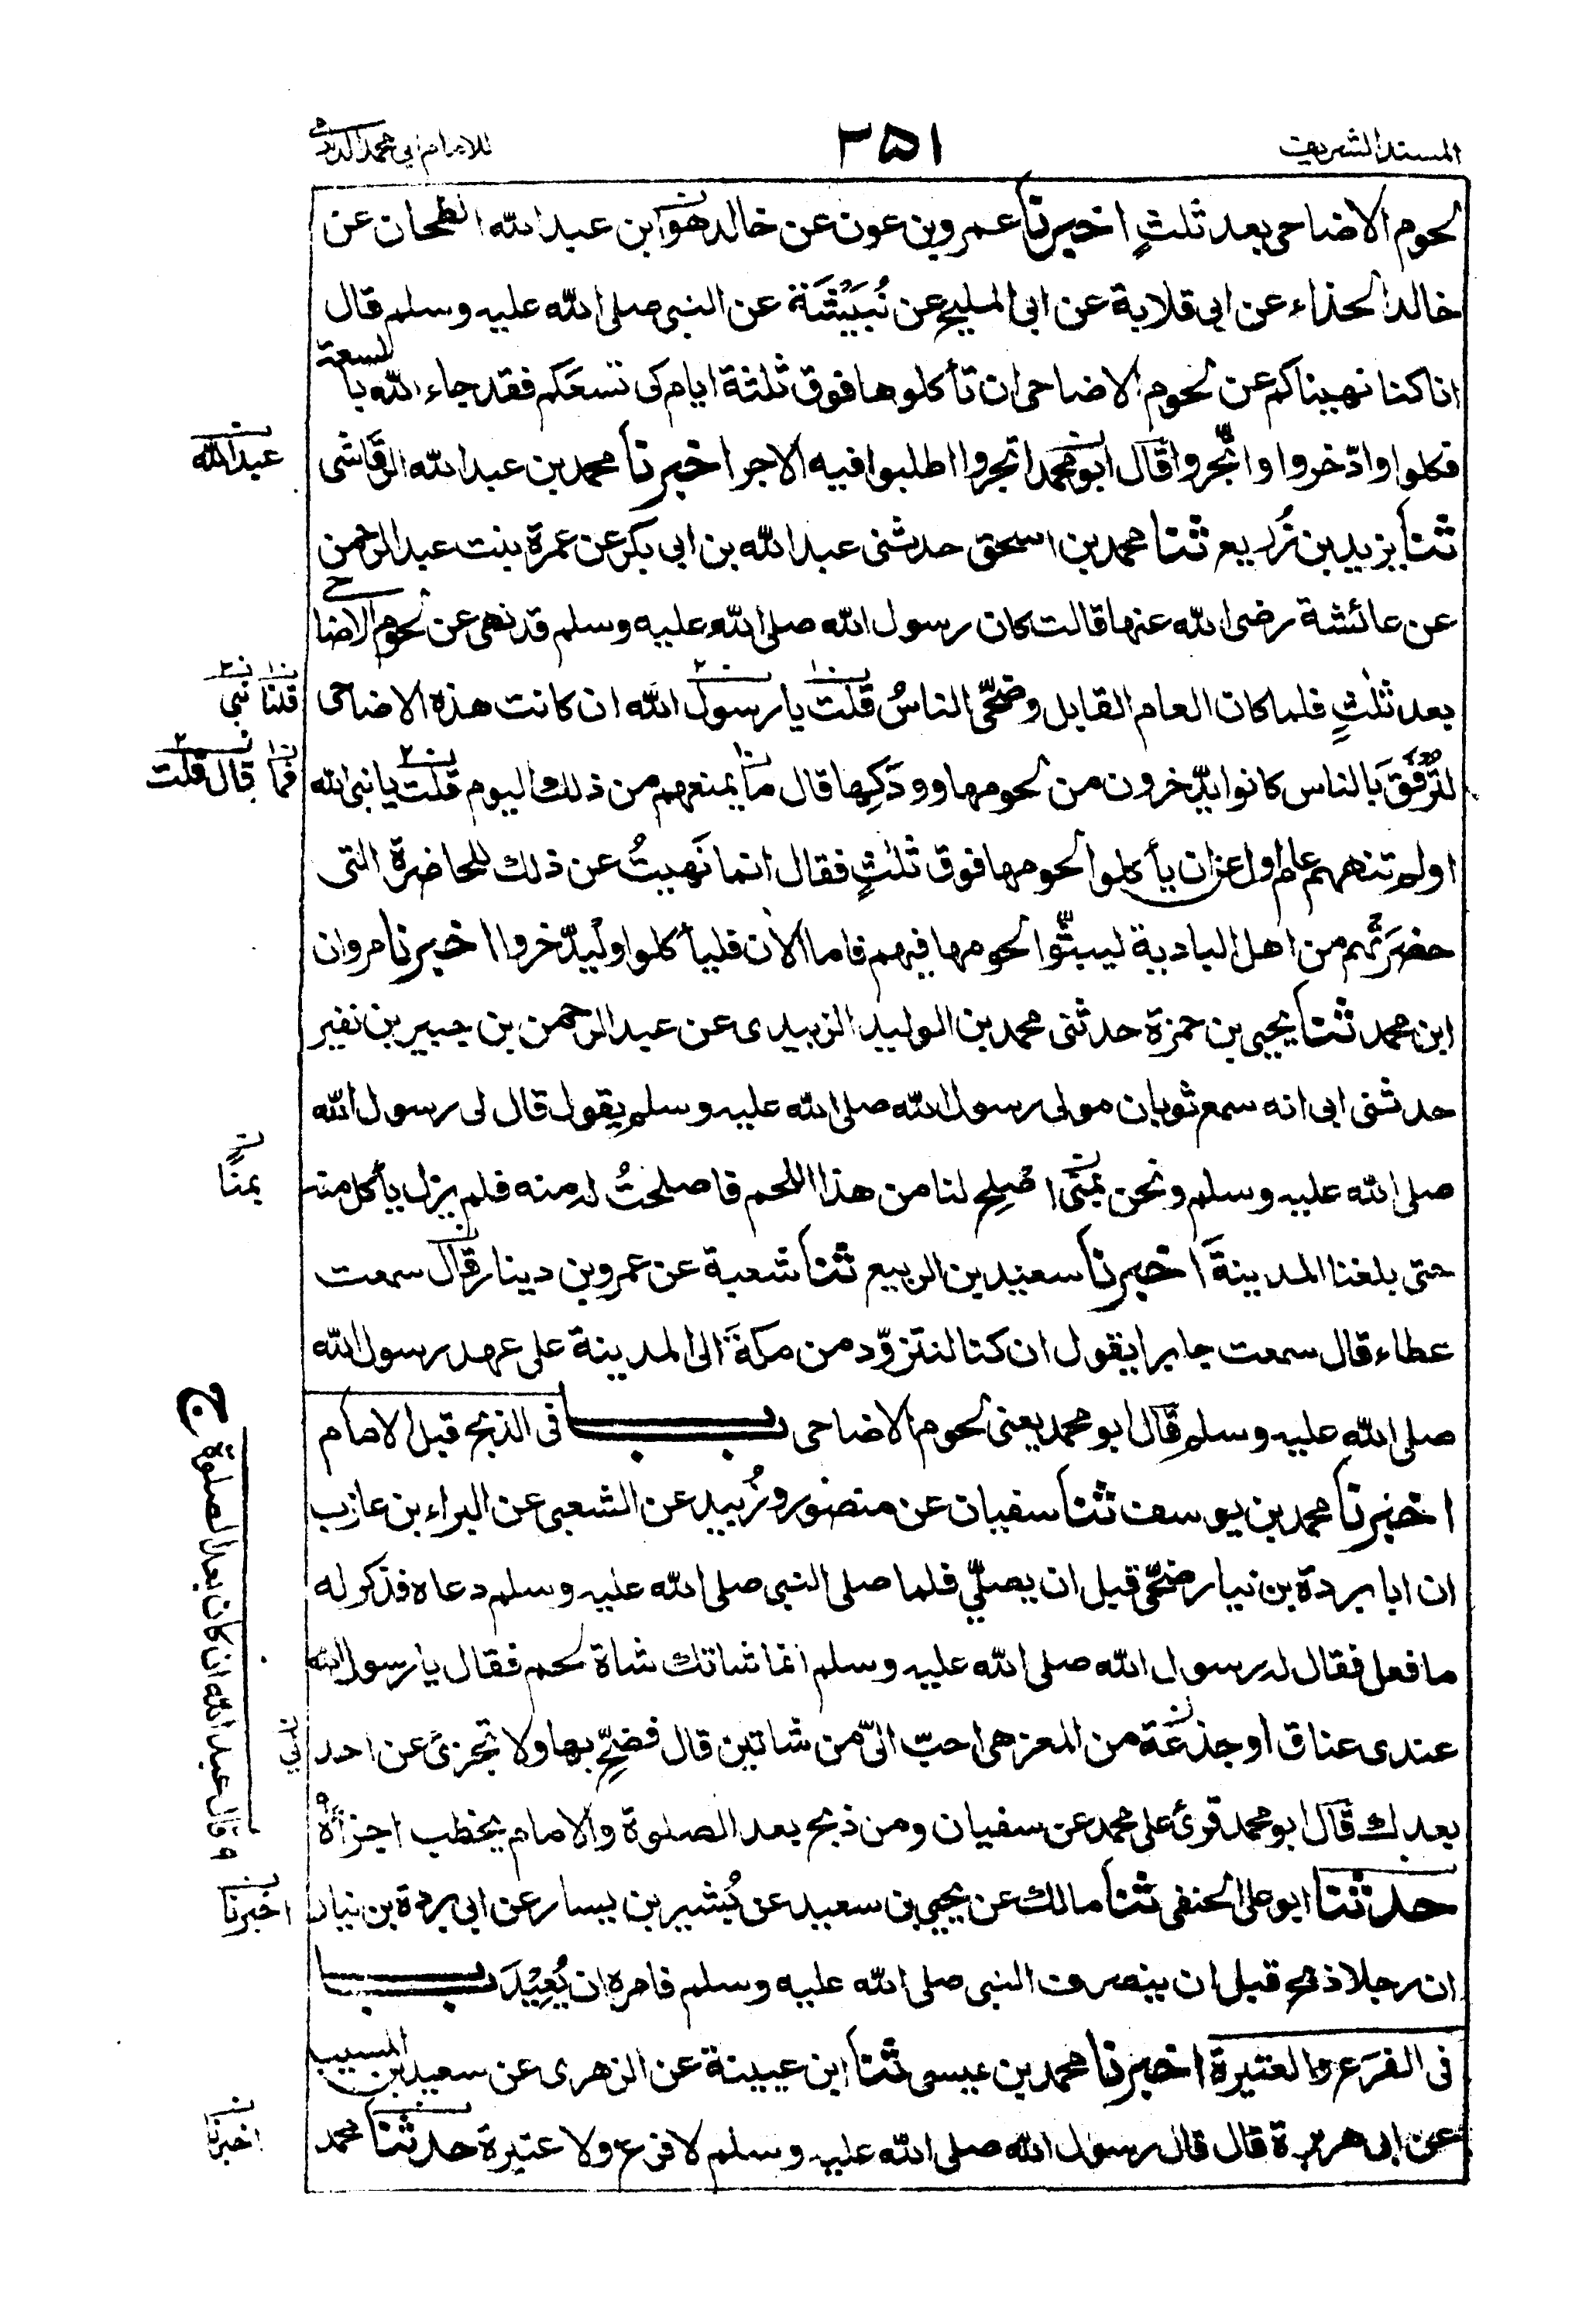 المسند الشريف ٢٥١ للامام ابي محمد الدارمي
لحوم الاضاحى بعد ثلثٍ اخبرنا عمرو بن عون عن خالد هو ابن عبد الله الطحان عن
خالد الحذاء عن ابى قلابة عن ابى المليح عن نُبَيْشَةَ عن النبى صلى الله عليه وسلم قال
انا كنا نهيناكم عن لحوم الاضاحى ان تأكلوها فوق ثلثة ايام كى تسعَكم فقد جاء الله بالسعة
فكلوا وادّخروا واتّجروا قال ابو محمد اتجروا اطلبوا فيه الاجر اخبرنا محمد بن عبد الله الرَّقَاشى
عبد الله
ثنا يزيد بن زُريع ثنا محمد بن اسحق حدثنى عبد الله بن ابى بكر عن عمرة بنت عبد الرحمن
عن عائشة رضى الله عنها قالت كان رسول الله صلى الله عليه وسلم قد نهى عن لحوم الاضاحى
بعد ثلثٍ فلما كان العام القابل وضحّى الناسُ قلت يا رسول الله ان كانت هذه الاضاحى
قلنا نبى
لتُرْفَقَ بالناس كانوا يدّخرون من لحومها ووَدَكِها قال ما يمنعهم من ذلك اليوم قلت يا نبى الله
فما قال قلت
اولم تنههم عام اول عن ان يأكلوا لحومها فوق ثلثٍ فقال انما نَهيتُ عن ذلك للحاضرة التى
حضرَتْهم من اهل البادية ليبثّوا لحومها فيهم فاما الآن فليأكلوا ولْيدّخروا اخبرنا مروان
ابن محمد ثنا يحيى بن حمزة حدثنى محمد بن الوليد الزبيدى عن عبد الرحمن بن جبير بن نفير
حدثنى ابى انه سمع ثوبان مولى رسول الله صلى الله عليه وسلم يقول قال لى رسول الله
صلى الله عليه وسلم ونحن بمنَى اصْلِح لنا من هذا اللحم فاصلحتُ له منه فلم يزل يأكل منه
بمنًا
حتى بلغنا المدينةَ اخبرنا سعيد بن الربيع ثنا شعبة عن عمرو بن دينار قال سمعت
عطاء قال سمعت جابرا يقول ان كنا لنتزوّد من مكةَ الى المدينة على عهد رسول الله
صلى الله عليه وسلم قال ابو محمد يعنى لحوم الاضاحى باب فى الذبح قبل الامام
اخبرنا محمد بن يوسف ثنا سفيان عن منصور وزُبيد عن الشعبى عن البراء بن عازب
ان ابا بردة بن نيار ضحّى قبل ان يصلّي فلما صلى النبى صلى الله عليه وسلم دعاه فذكر له
ما فعل فقال له رسول الله صلى الله عليه وسلم انما شاتك شاة لحم فقال يا رسول الله
عندى عناق او جذعَة من المعز هى احبّ الىّ من شاتين قال فضحِّ بها ولا تجزئ عن احد
بعدك قال ابو محمد قرئ على محمد عن سفيان ومن ذبح بعد الصلوة والامام يخطب اجزأهُ
قال عبد الله ان كان بعد الصلوة
حدثنا ابو على الحنفى ثنا مالك عن يحيى بن سعيد عن بُشير بن يسار عن ابى بردة بن نيار
اخبرنا
ان رجلا ذبح قبل ان ينصرف النبى صلى الله عليه وسلم فامره ان يُعِيْدَ باب
فى الفَرَع والعتيرة اخبرنا محمد بن عيسى ثنا ابن عيينة عن الزهرى عن سعيد بن المسيب
عن ابى هريرة قال قال رسول الله صلى الله عليه وسلم لا فرع ولا عتيرة حدثنا محمد
اخبرنا